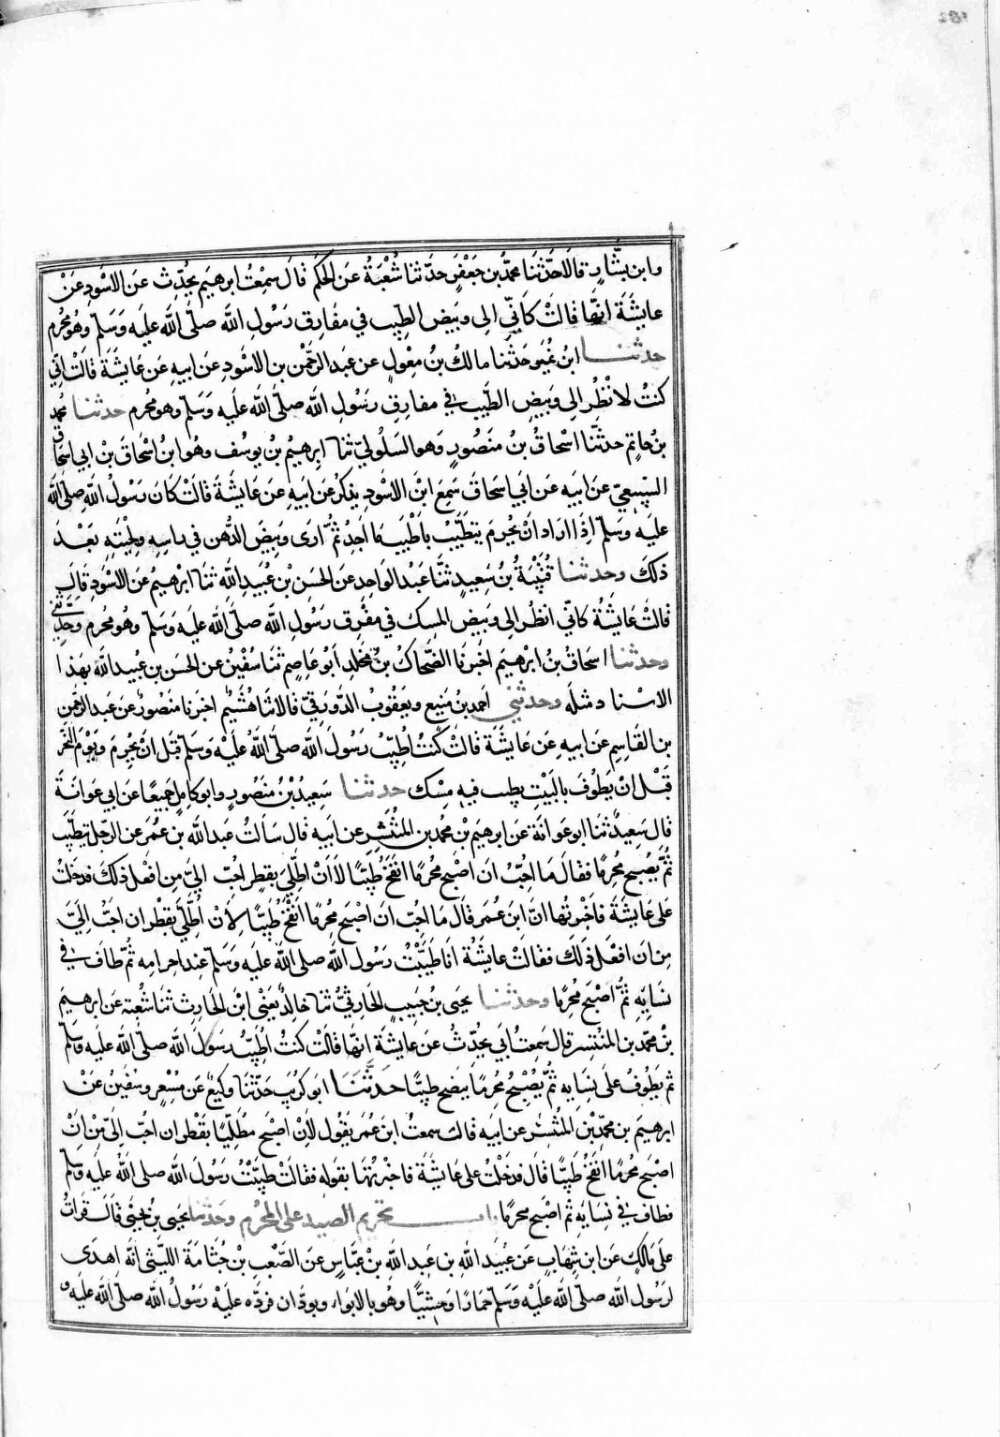 وابن بشار قالا حدثنا محمد بن جعفر حدثنا شعبة عن الحكم قال سمعت ابرهيم يحدث عن الاسود عن
عايشة انها قالت كاني الى وبيض الطيب في مفارق رسول الله صلى الله عليه وسلم وهو محرم
حدثنا ابن نمير حدثنا مالك بن مغول عن عبد الرحمن بن الاسود عن ابيه عن عايشة قالت اني
كنت لانظر الى وبيض الطيب في مفارق رسول الله صلى الله عليه وسلم وهو محرم حدثنا محمد
بن حاتم حدثنا اسحاق بن منصور وهو السلولي ثنا ابرهيم بن يوسف وهو ابن اسحاق بن ابي اسحاق
السبيعي عن ابيه عن ابي اسحاق سمع ابن الاسود يذكر عن ابيه عن عايشة قالت كان رسول الله صلى الله
عليه وسلم اذا اراد ان يحرم يتطيب باطيب ما اجد ثم ارى وبيض الدهن في راسه ولحيته بعد
ذلك وحدثنا قتيبة بن سعيد ثنا عبد الواحد عن الحسن بن عبيد الله ثنا ابرهيم عن الاسود قال
قالت عايشة كاني انظر الى وبيض المسك في مفرق رسول الله صلى الله عليه وسلم وهو محرم وحدثني
وحدثنا اسحاق بن ابرهيم اخبرنا الضحاك بن مخلد ابو عاصم ثنا سفين عن الحسن بن عبيد الله بهذا
الاسناد مثله وحدثني احمد بن منيع ويعقوب الدورقي قالا ثنا هشيم اخبرنا منصور عن عبد الرحمن
بن القاسم عن ابيه عن عايشة قالت كنت اطيب رسول الله صلى الله عليه وسلم قبل ان يحرم ويوم النحر
قبل ان يطوف بالبيت بطيب فيه مسك حدثنا سعيد بن منصور وابو كامل جميعا عن ابي عوانة
قال سعيد ثنا ابو عوانة عن ابرهيم بن محمد بن المنتشر عن ابيه قال سالت عبد الله بن عمر عن الرجل يتطيب
ثم يصبح محرما فقال ما احب ان اصبح محرما انضخ طيبا لاان اطلي بقطر احب الي من افعل ذلك فدخلت
على عايشة فاخبرتها ان ابن عمر قال ما احب ان اصبح محرما انضخ طيبا لان اطلي بقطران احب الي
من ان افعل ذلك فقالت عايشة انا طيبت رسول الله صلى الله عليه وسلم عند احرامه ثم طاف في
نسايه ثم اصبح محرما وحدثنا يحيى بن حبيب الحارثي ثنا خالد يعني ابن الحارث ثنا شعبة عن ابرهيم
بن محمد بن المنتشر قال سمعت ابي يحدث عن عايشة انها قالت كنت اطيب رسول الله صلى الله عليه وسلم
ثم يطوف على نسايه ثم يصبح محرما ينضخ طيبا حدثنا ابو كريب حدثنا وكيع عن مسعر وسفين عن
ابرهيم بن محمد بن المنتشر عن ابيه قال سمعت ابن عمر يقول لان اصبح مطليا بقطران احب الي من ان
اصبح محرما انضخ طيبا قال فدخلت على عايشة فاخبرتها بقوله فقالت طيبت رسول الله صلى الله عليه وسلم
فطاف في نسايه ثم اصبح محرما باب تحريم الصيد على المحرم وحدثنا يحيى بن يحيى قال قرات
على مالك عن ابن شهاب عن عبيد الله بن عبد الله بن عباس عن الصعب بن جثامة الليثي انه اهدى
لرسول الله صلى الله عليه وسلم حمارا وحشيا وهو بالابواء وبودان فرده عليه رسول الله صلى الله عليه